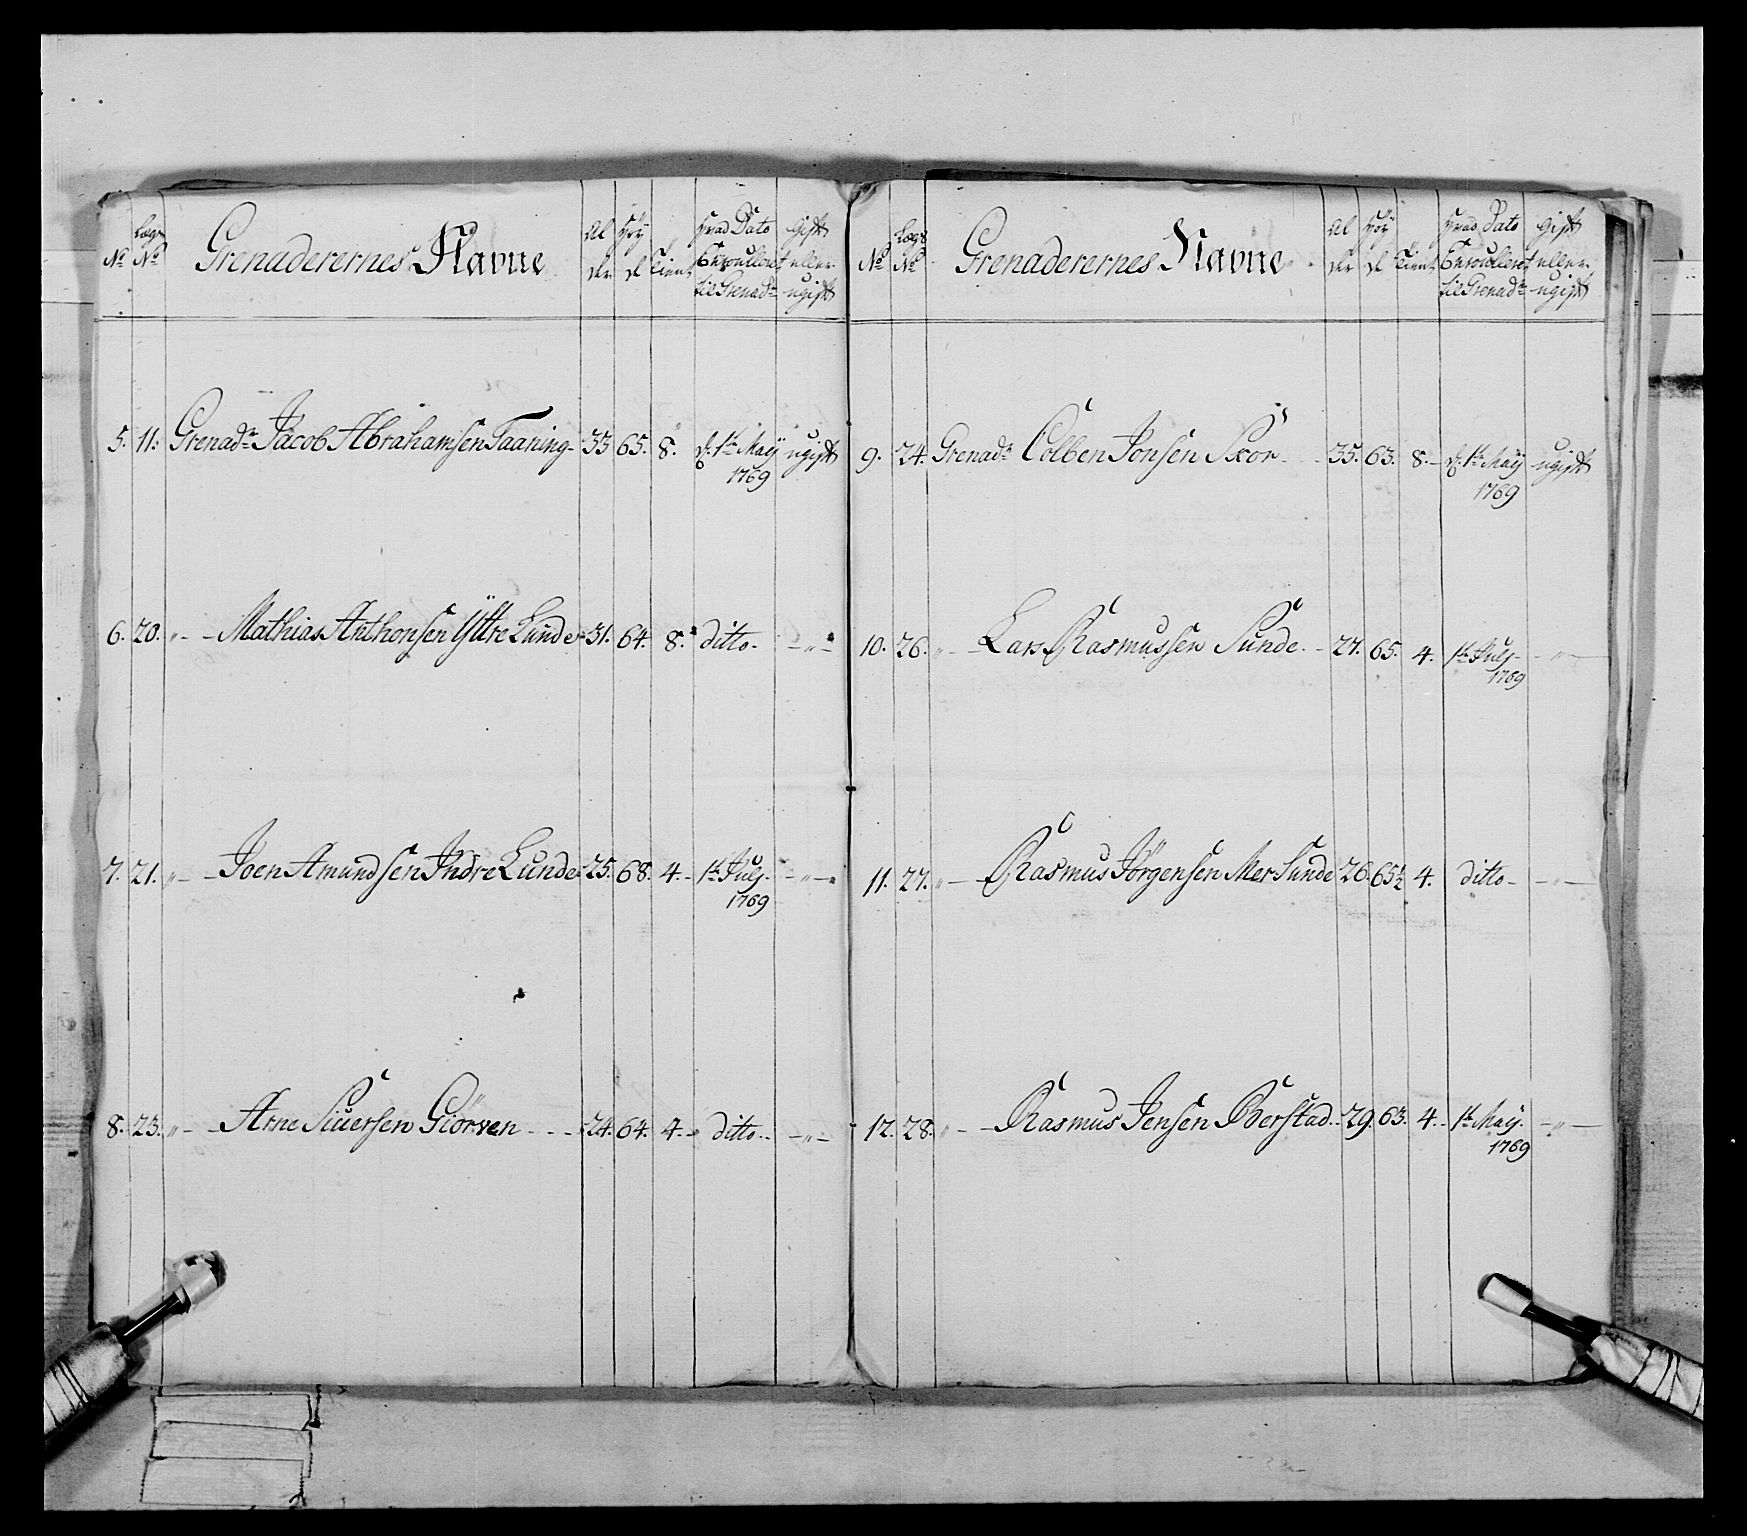 No Lægs No Grenaderernes Navne Alder Høyde Tient Hvad Dato Enroulleret til Grenadr gift eller ugift
5. 11. Grenadr Jacob Abrahamsen Taaning 33 65. 8. d. 1te Maÿ 1769 ugift
6. 20. " Mathias Anthonsen Ÿttre Lunde 31. 64. 8. ditto "
7. 21. " Joen Amundsen Indre Lunde 25. 68. 4. 1te Julj. 1769 "
8. 23. " Arne Siuersen Giörven 24. 64. 4. ditto "
No Lægs No Grenaderernes Navne Alder Høyde Tient Hvad Dato Enroulleret til Grenadr gift eller ugift
9. 24. Grenadr Colben Jonsen Skor 35. 63. 8. d. 1te Maÿ 1769 ugift
10. 26. " Lars Rasmussen Sunde 27. 65. 4. 1te Julj 1769 "
11. 27. " Rasmus Jörgensen Mer Sunde 26. 65½ 4. ditto "
12. 28. " Rasmus Jensen Berstad 29. 63. 4. 1te Maÿ. 1769 "